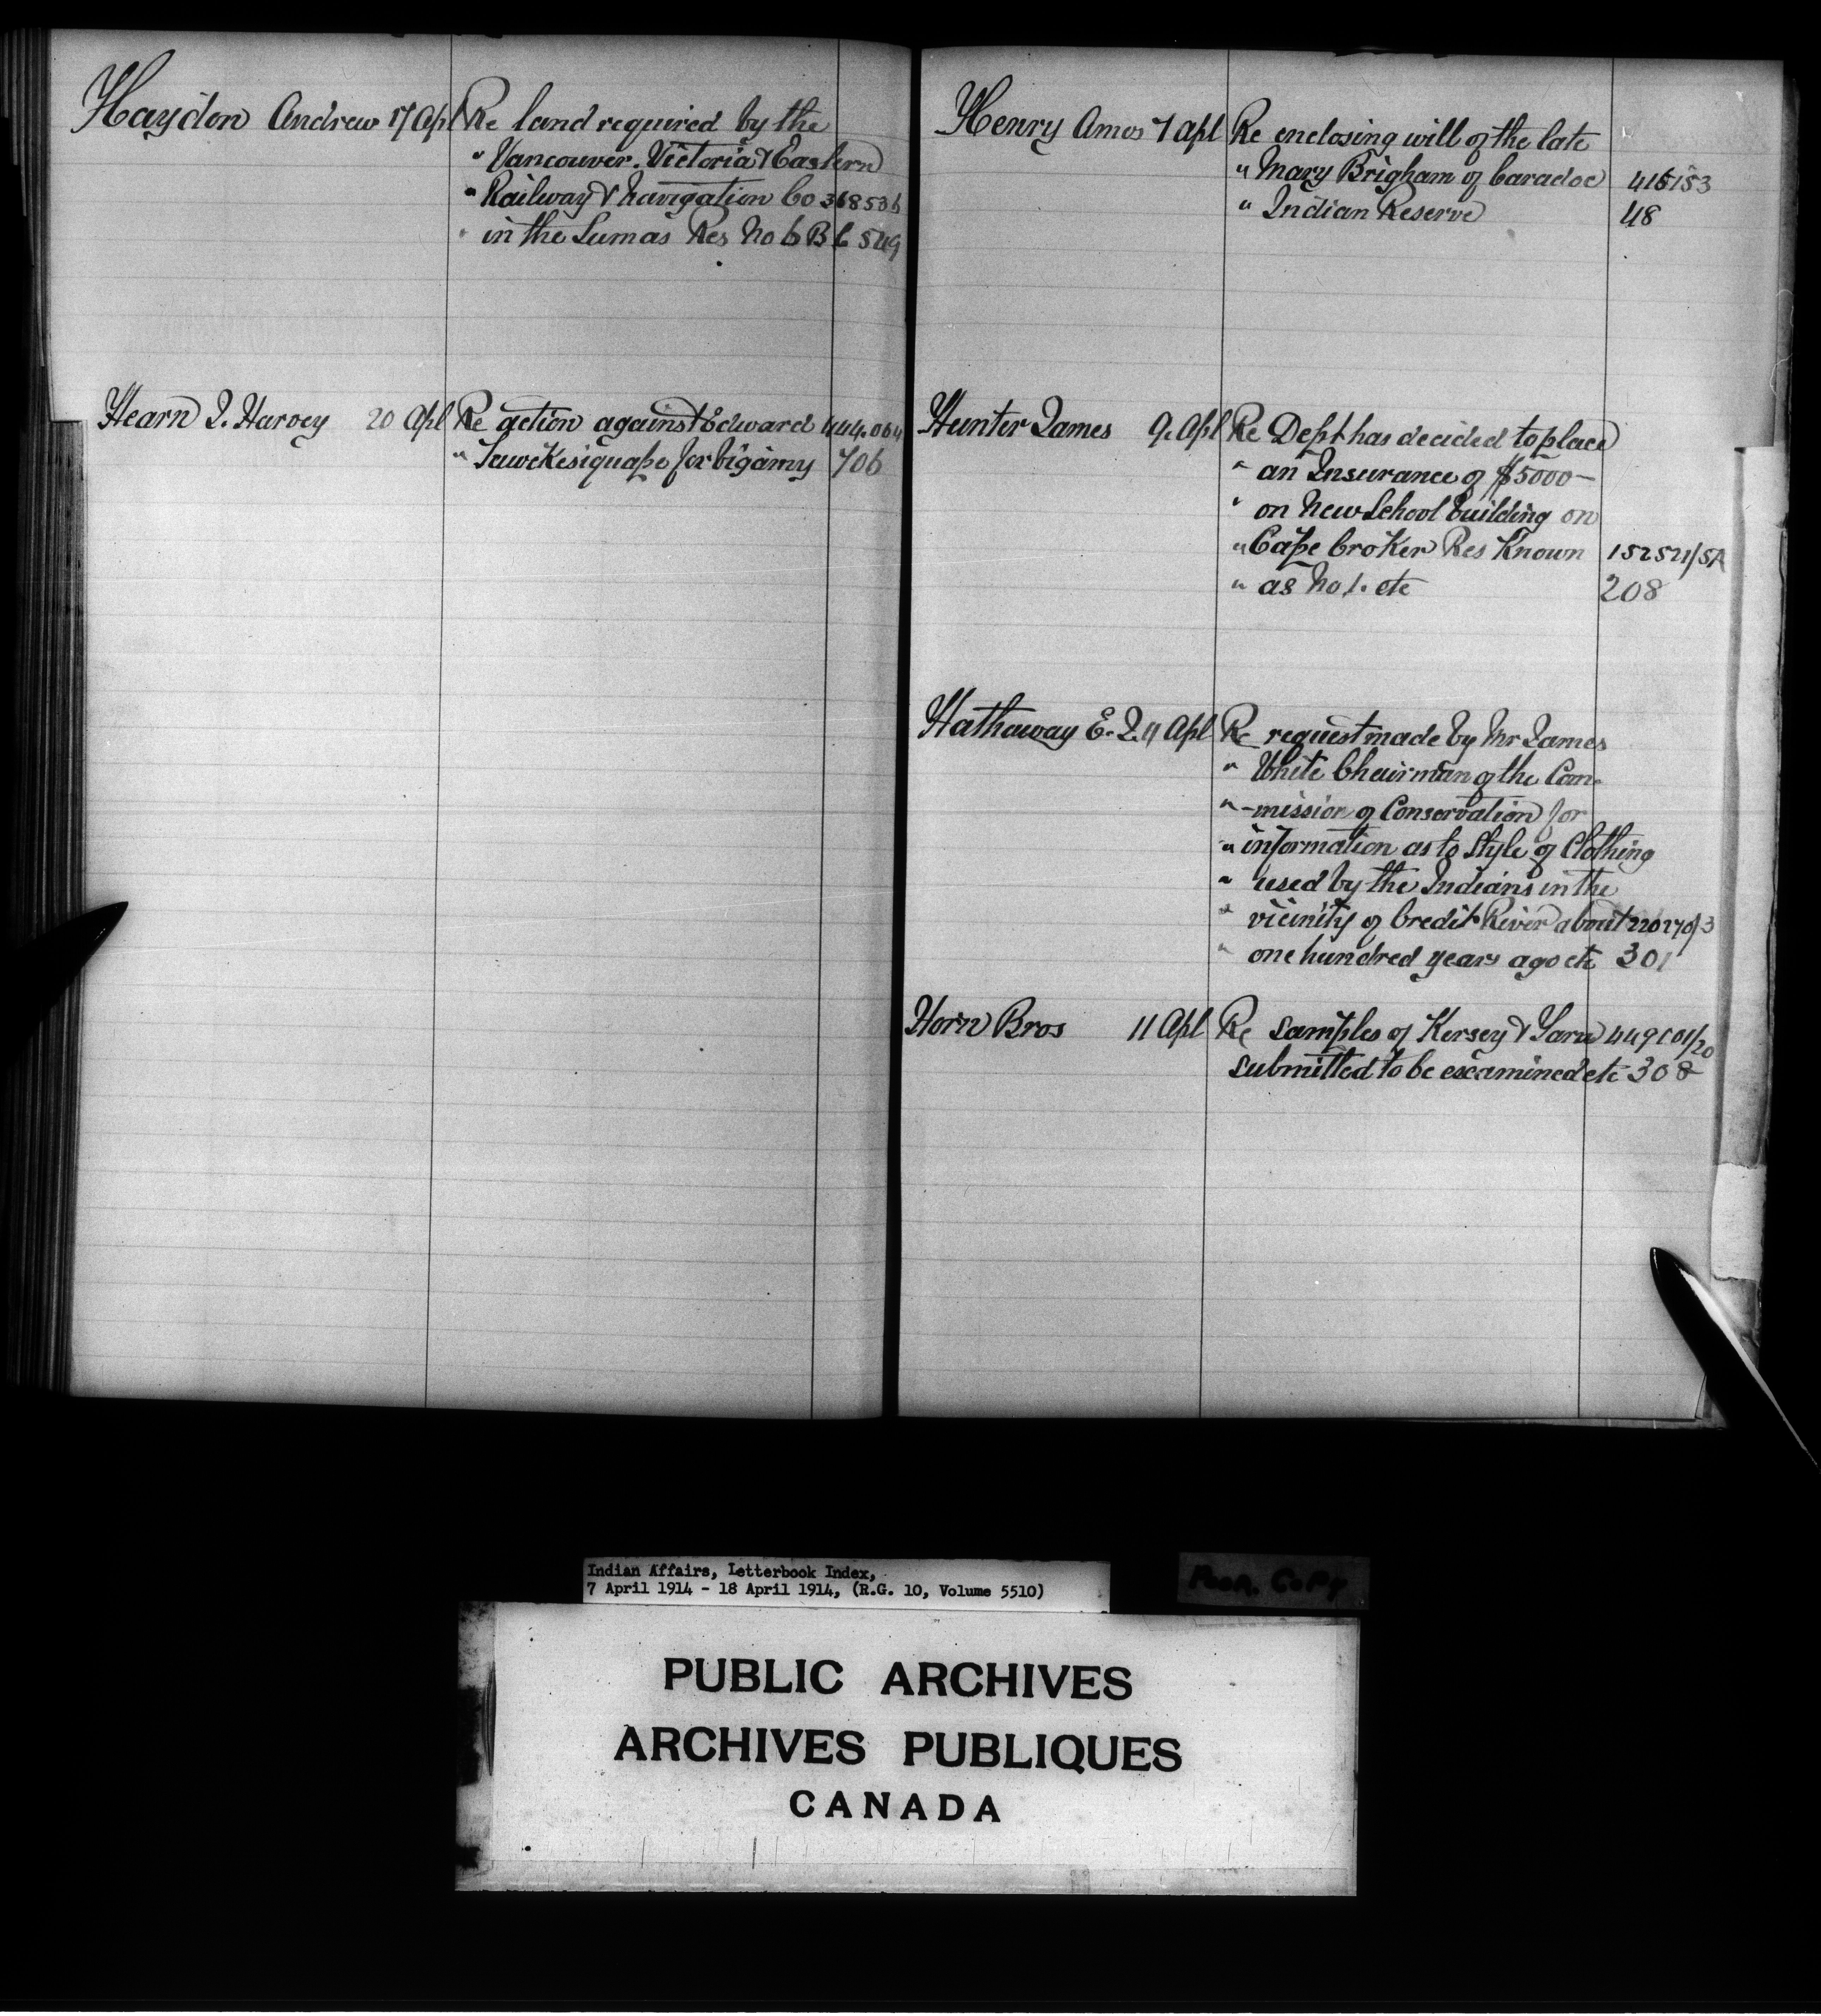 Haydon Andrew 17 Apl Re land required by the
" Vancouver. Victoria & Eastern
" Railway & Navigation Co 368536
" in the Sumas Res No 6 B C 549
Hearn J. Harvey 20 Apl Re action against Edward 444.064
" for bigamy 706
Henry Amos 7 Apl Re enclosing will of the late
" Mary Brigham of Caradoc 416153
" Indian Reserve 48
Hunter James 9. Apl Re Dept has decided to place
" an Insurance of $5000 —
" on New School building on
" Cape Croker Res Known 152521/5A
" as No 1. etc 208
Hathaway E. J. 11 Apl Re request made by Mr James
" White Chairman of the Com-
" -mission of Conservation for
" information as to Style of Clothing
" used by the Indians in the
" vicinity of Credit River about 220270/3
" one hundred years ago etc 301
Horn Bros 11 Apl Re samples of Kersey & Yarn 449101/20
submitted to be examined etc 308
Indian Affairs, Letterbook Index,
7 April 1914 - 18 April 1914, (R.G. 10, Volume 5510)
Poor. Copy
PUBLIC ARCHIVES
ARCHIVES PUBLIQUES
CANADA